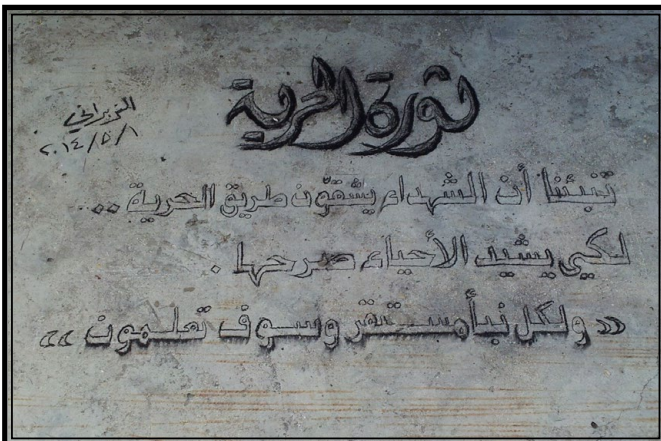 ثورة الحرية
الزبراني
٢٠١٤/٥/١
تنبئنا أن الشهداء يشقون طريق الحرية ..
لكي يشيد الأحياء صرحها .
«ولكل نبأ مستقر وسوف تعلمون»